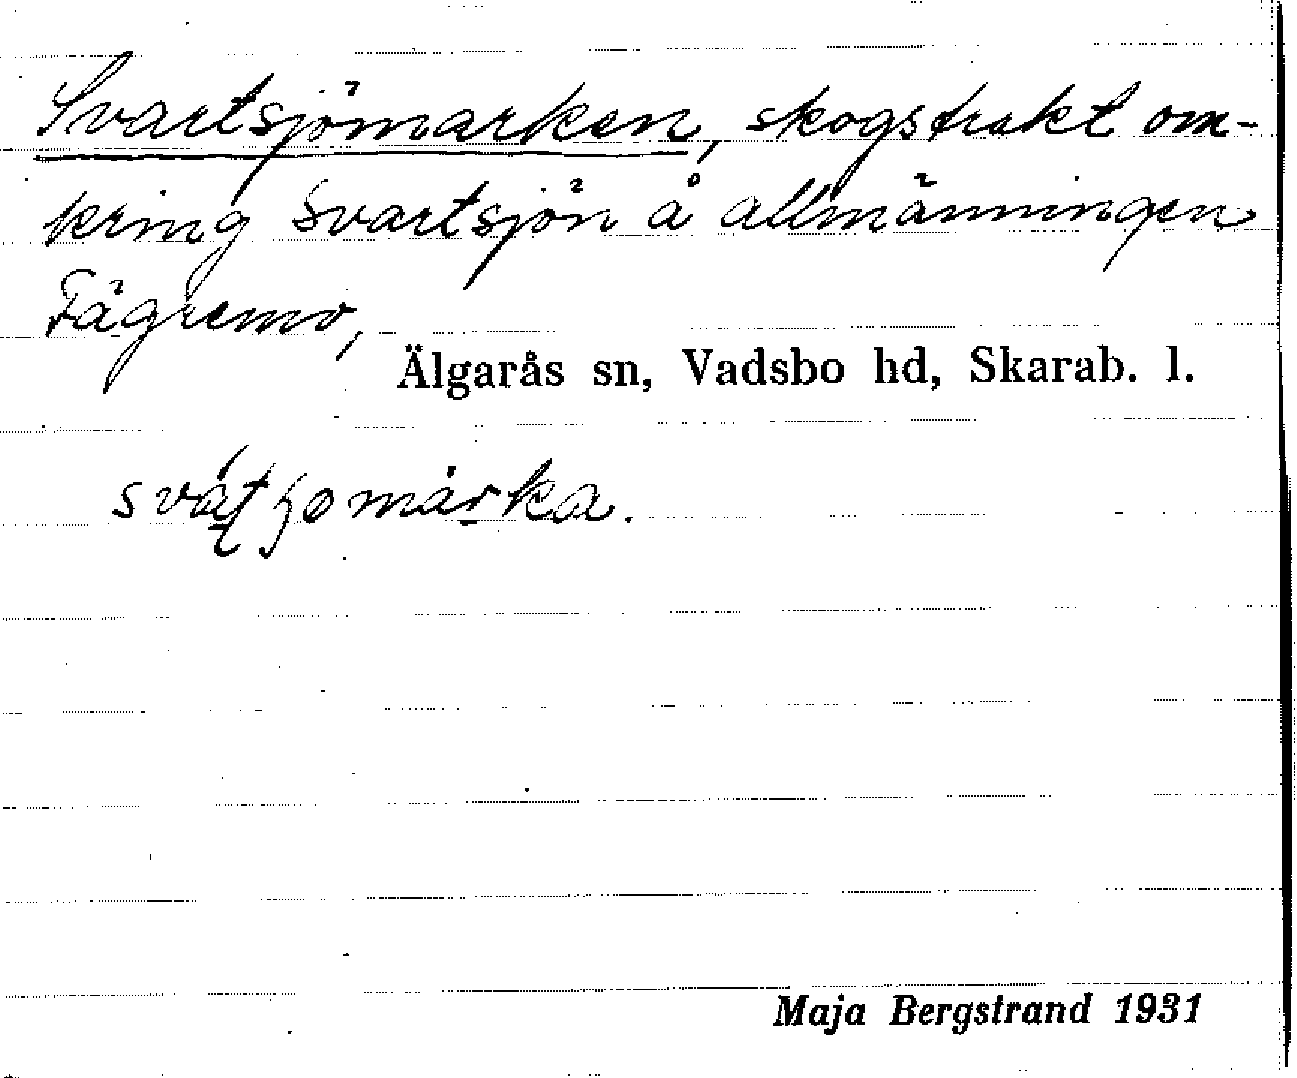 Svartsjömarken, skogstrakt om-
kring Svartsjön å allmänningen
Fägremo,
Älgarås sn, Vadsbo hd, Skarab. l.
Maja Bergstrand 1931